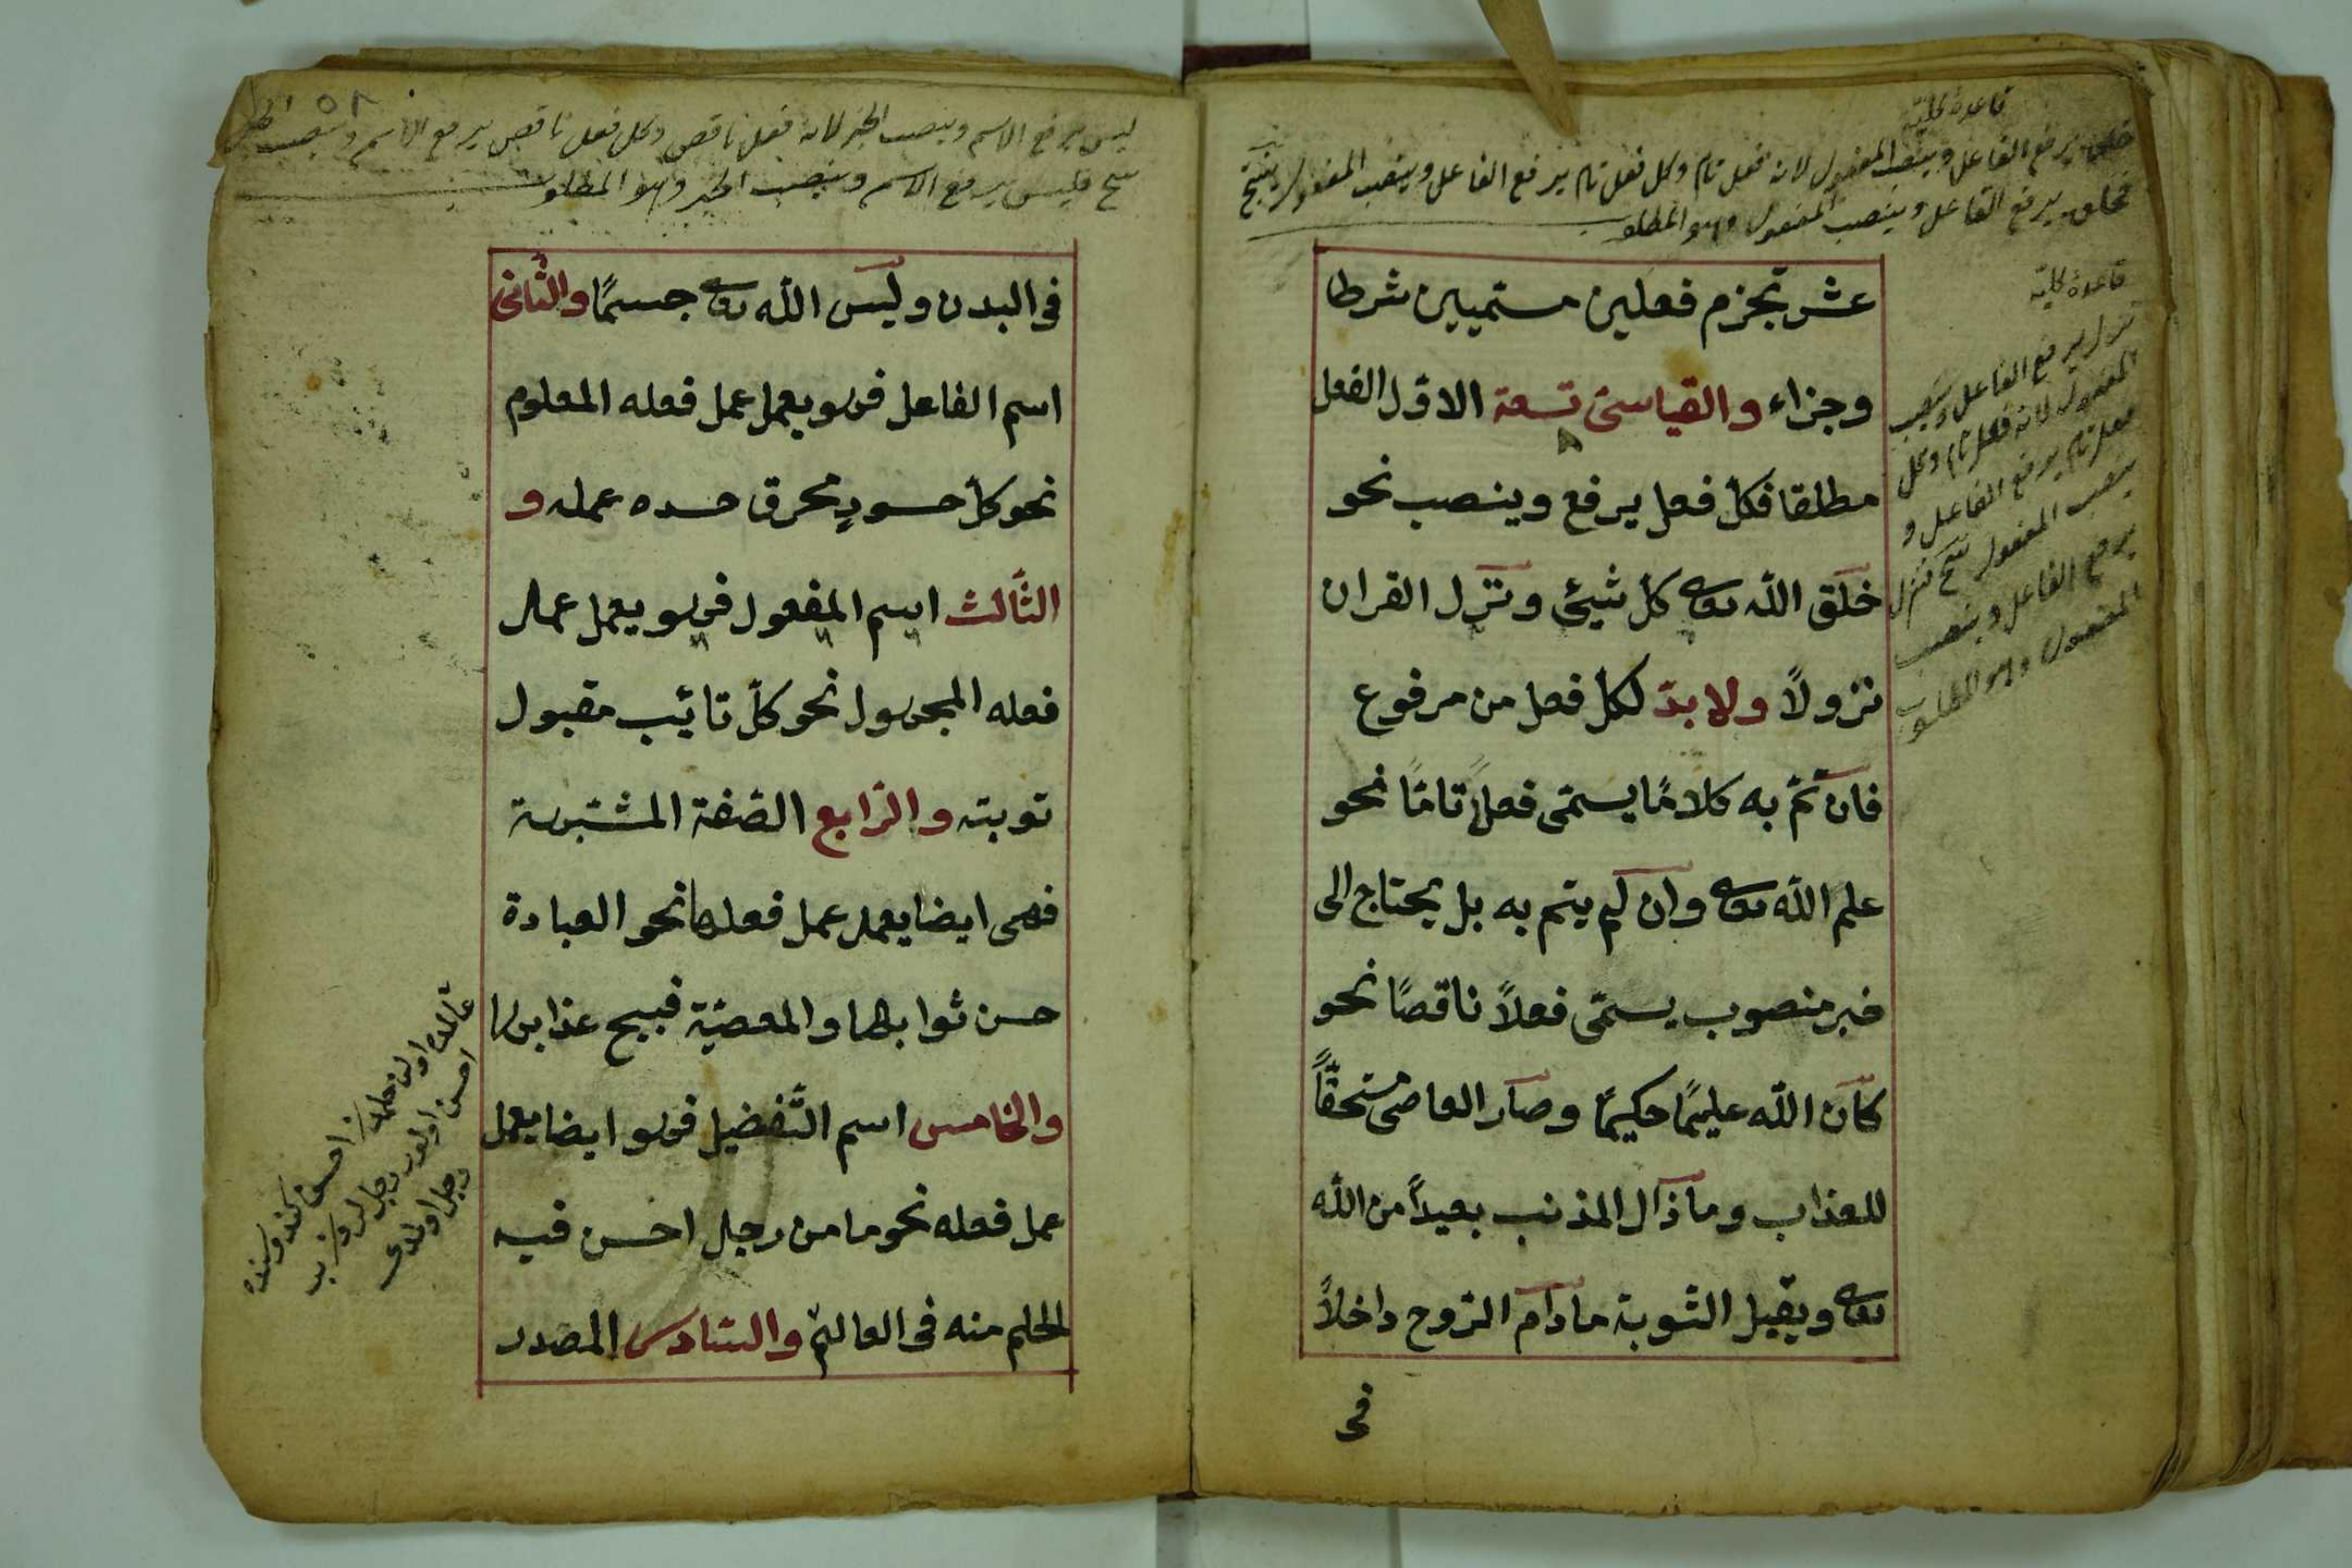 قاعدة كليّة
خلق يرفع الفاعل وينصب المفعول لانه فعل تام وكل فعل تام يرفع الفاعل وينصب المفعول ينتج
فخلق يرفع الفاعل وينصب المفعول وهو المطلوب
قاعدة كليّة
نزل يرفع الفاعل وينصب
المفعول لانه فعل تام وكل
فعل تام يرفع الفاعل و
ينصب المفعول ينتج فنزل
يرفع الفاعل وينصب
المفعول وهو المطلوب
عشر تجزم فعلين مسمّيين شرطا
وجزاء والقياسىّ تسعة الاوّل الفعل
مطلقا فكلّ فعل يرفع وينصب نحو
خلق اللّه تعالى كلّ شيئ ونزل القران
نزولاً ولا بدّ لكلّ فعل من مرفوع
فان تمّ به كلامًا يسمّى فعلاً تامّا نحو
علم اللّه تعالى وان لم يتم به بل يحتاج الى
خبر منصوب يسمّى فعلاً ناقصًا نحو
كان اللّه عليمًا حكيمًا وصار العاصى مستحقًّا
للعذاب وماذال المذنب بعيداً من اللّه
تعالى ويقبل التّوبة مادام الرّوح داخلاً
فى
٥٨
ليس يرفع الاسم وينصب الخبر لانه فعل ناقص وكل فعل ناقص يرفع الاسم وينصب الخبر
ينتج فليس يرفع الاسم وينصب الخبر وهو المطلوب
فى البدن وليس اللّه تعالى جسمًا والثّانى
اسم الفاعل فهو يعمل عمل فعله المعلوم
نحو كلّ حسودٍ محرق حسده عمله و
الثّالث اسم المفعول فهو يعمل عمل
فعله المجهول نحو كلّ تائب مقبول
توبته والرّابع الصّفة المشبّهة
فهى ايضا يعمل عمل فعلها نحو العبادة
حسن ثوابها والمعصيّة قبيح عذابها
والخامس اسم التّفضيل فهو ايضا يعمل
عمل فعله نحو ما من رجل احسن فيه
الحلم منه فى العالم والسّادس المصدر